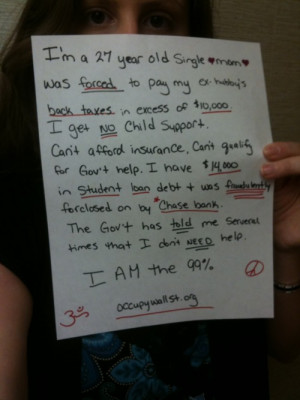 I'm a 27 year old Single ♥mom♥
was forced to pay my ex-hubby's
back taxes in excess of $10,000.
I get NO Child Support.
Can't afford insurance, Can't qualify
for Gov't help. I have $14,000
in student loan debt + was fraudulently
forclosed on by *Chase bank.
The Gov't has told me several
times that I don't NEED help.
I AM the 99%
occupywallst.org